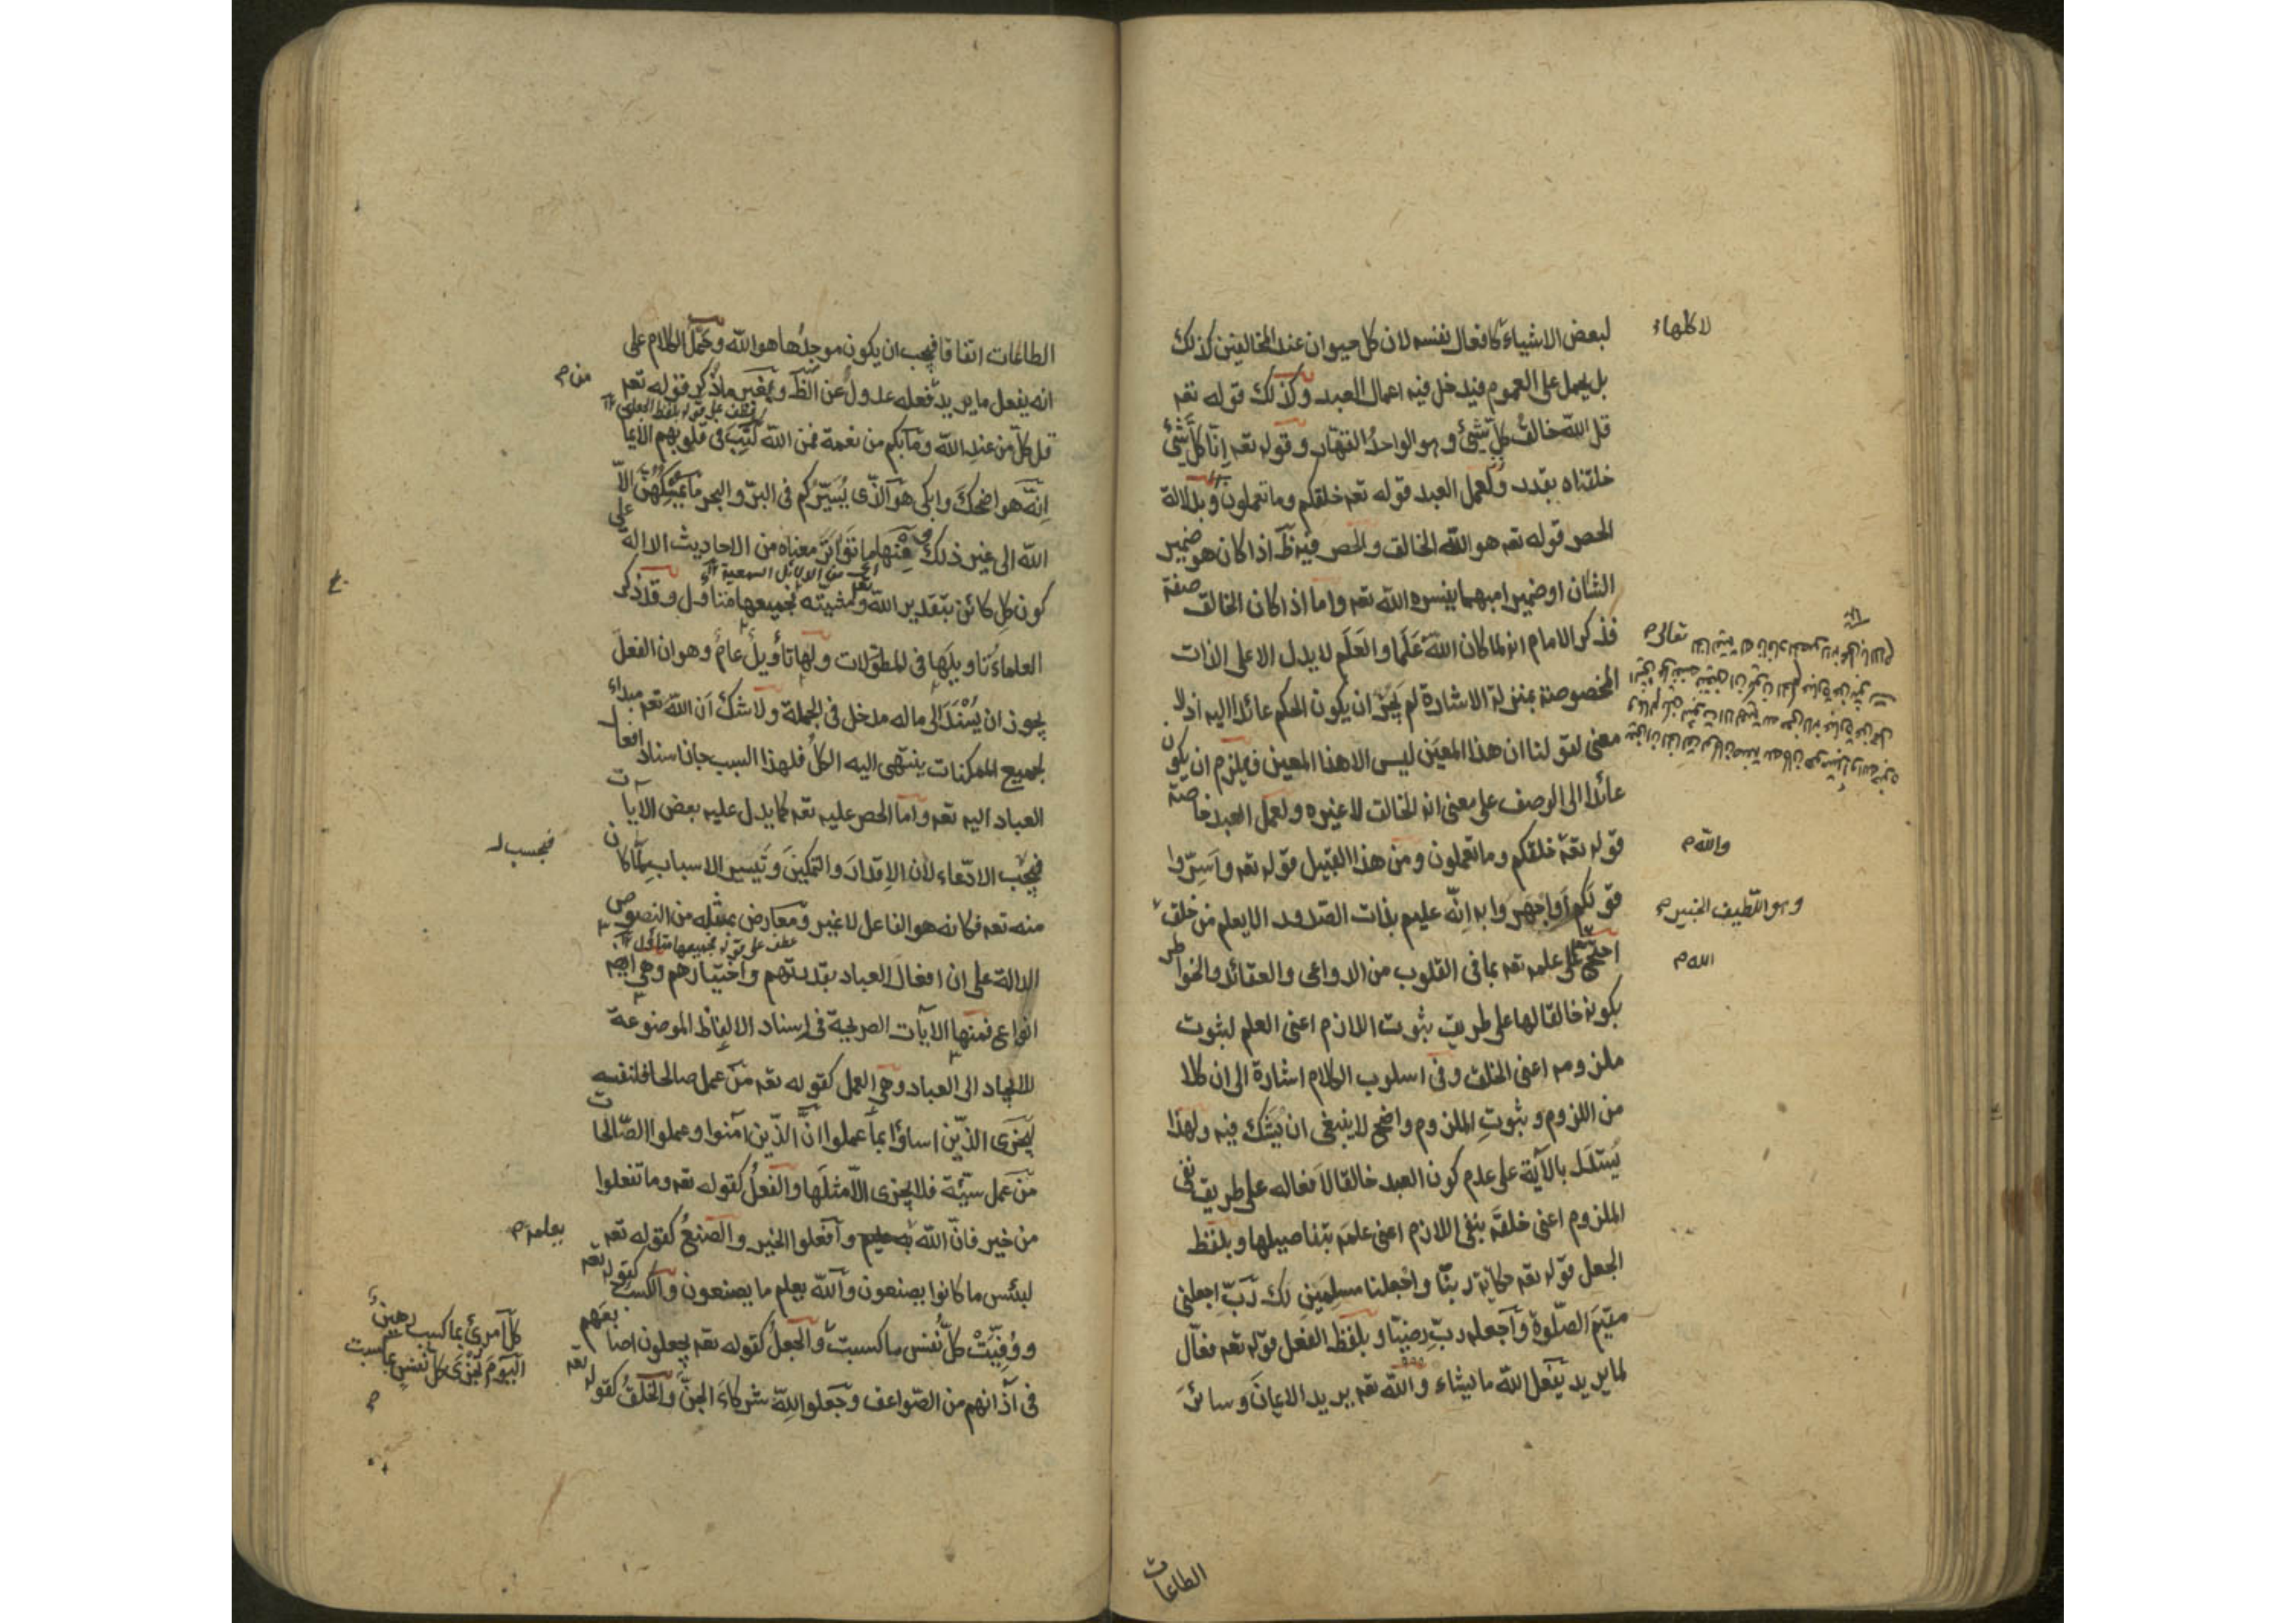 لبعض الاشياء كافعال نفسه لان كل حيوان عند المخالفين كذلك
لا كلها
بل يحمل على العموم فيدخل فيه اعمال العبد وكذلك قوله تعه
قل الله خالق كل شئ وهو الواحد القهار وقوله تعه انا كل شئ
خلقناه بقدر ولعمل العبد قوله تعه خلقكم وما تعملون وبدلالة
الحصر قوله تعه هو الله الخالق والحصر فيه ظ اذا كان هو ضمير
الشان او ضميرا مبهما يفسره الله تعه واما اذا كان الخالق صفة
فذكر الامام انه لما كان الله علما والعلم لا يدل الا على الذات
تعالى
المخصوصة بمنزلة الاشارة لم يجز ان يكون الحكم عائدا اليه اذ لا
معنى لقولنا ان هذا المعين ليس الا هذا المعين فيلزم ان يكون
عائدا الى الوصف على معنى انه الخالق لا غيره ولعمل العبد خاصة
قوله تعه خلقكم وما تعملون ومن هذا القبيل قوله تعه واسروا
والله
قولكم او اجهروا به انه عليم بذات الصدور الا يعلم من خلق
وهو اللطيف الخبير
احتج على علمه تعه بما في القلوب من الدواعى والعقائد والخواطر
الله
بكونه خالقا لها على طريق ثبوت اللازم اعنى العلم لثبوت
ملزومه اعنى الخلق وفى اسلوب الكلام اشارة الى ان كلا
من اللزوم وثبوت الملزوم واضح لا ينبغى ان يشك فيه ولهذا
يستدل بالآية على عدم كون العبد خالقا لافعاله على طريق نفى
الملزوم اعنى خلقه بنفى اللازم اعنى علمه بتفاصيلها وبلفظ
الجعل قوله تعه حكاية ربنا واجعلنا مسلمين لك رب اجعلنى
مقيم الصلوة واجعله رب رضيا وبلفظ الفعل قوله تعه فعال
لما يريد يفعل الله ما يشاء والله تعه يريد الايمان وسائر
الطاعات
الطاعات اتفاقا فيجب ان يكون موجدها هو الله وحمل الكلام على
انه يفعل ما يريد فعله عدول عن الظ وبغير ما ذكر قوله تعه
من
عطف على قوله بلفظ الجعل
قل كل من عند الله وما بكم من نعمة فمن الله كتب فى قلوبهم الايما
انه هو اضحك وابكى هو الذى يسيركم فى البر والبحر ما يمسكهن الا
الله الى غير ذلك ومنها ما تواتر معناه من الاحاديث الدالة على
اى من الدلائل السمعية
كون كل كائن بتقدير الله تعه ومشيته بجميعها متناول وقد ذكر
العلماء تاويلها فى المطولات ولها تأويل عام وهو ان الفعل
يجوز ان يسند الى ما له مدخل فى الجملة ولا شك ان الله تعه مبداء
لجميع الممكنات ينتهى اليه الكل فلهذا السبب جاز اسناد افعال
العباد اليه تعه واما الحصر عليه تعه كما يدل عليه بعض الآيات
فبحسب الادعاء لان الاقدار والتمكين وتيسير الاسباب لما كان
فبحسب
منه تعه فكانه هو الفاعل لا غير ومعارض بمثله من النصوص
عطف على قوله بجميعها متناول
الدالة على ان افعال العباد بقدرتهم واختيارهم وهى ايضه
انواع فمنها الآيات الصريحة فى اسناد الالفاظ الموضوعة
للايجاد الى العباد وهى العمل كقوله تعه من عمل صالحا فلنفسه
ليجزى الذين اساؤا بما عملوا ان الذين آمنوا وعملوا الصالحات
من عمل سيئة فلا يجزى الا مثلها والفعل كقوله تعه وما تفعلوا
من خير فان الله به عليم وافعلوا الخير والصنع كقوله تعه
يعلمه
لبئس ما كانوا يصنعون والله يعلم ما يصنعون والكسب كقوله تعه
كل امرئ بما كسب رهين
ووفيت كل نفس ما كسبت والجعل كقوله تعه يجعلون اصابعهم
اليوم تجزى كل نفس بما كسبت
فى آذانهم من الصواعق وجعلوا لله شركاء الجن والخلق كقوله تعه